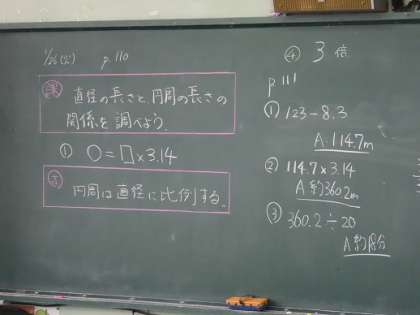 1/26(金) p.110
課 直径の長さと、円周の長さの
関係を調べよう。
① ○=□×3.14
ま 円周は直径に比例する。
④ 3倍
p.111
① 123-8.3
A.114.7m
② 114.7×3.14
A 約360.2m
③ 360.2÷20
A 約18分